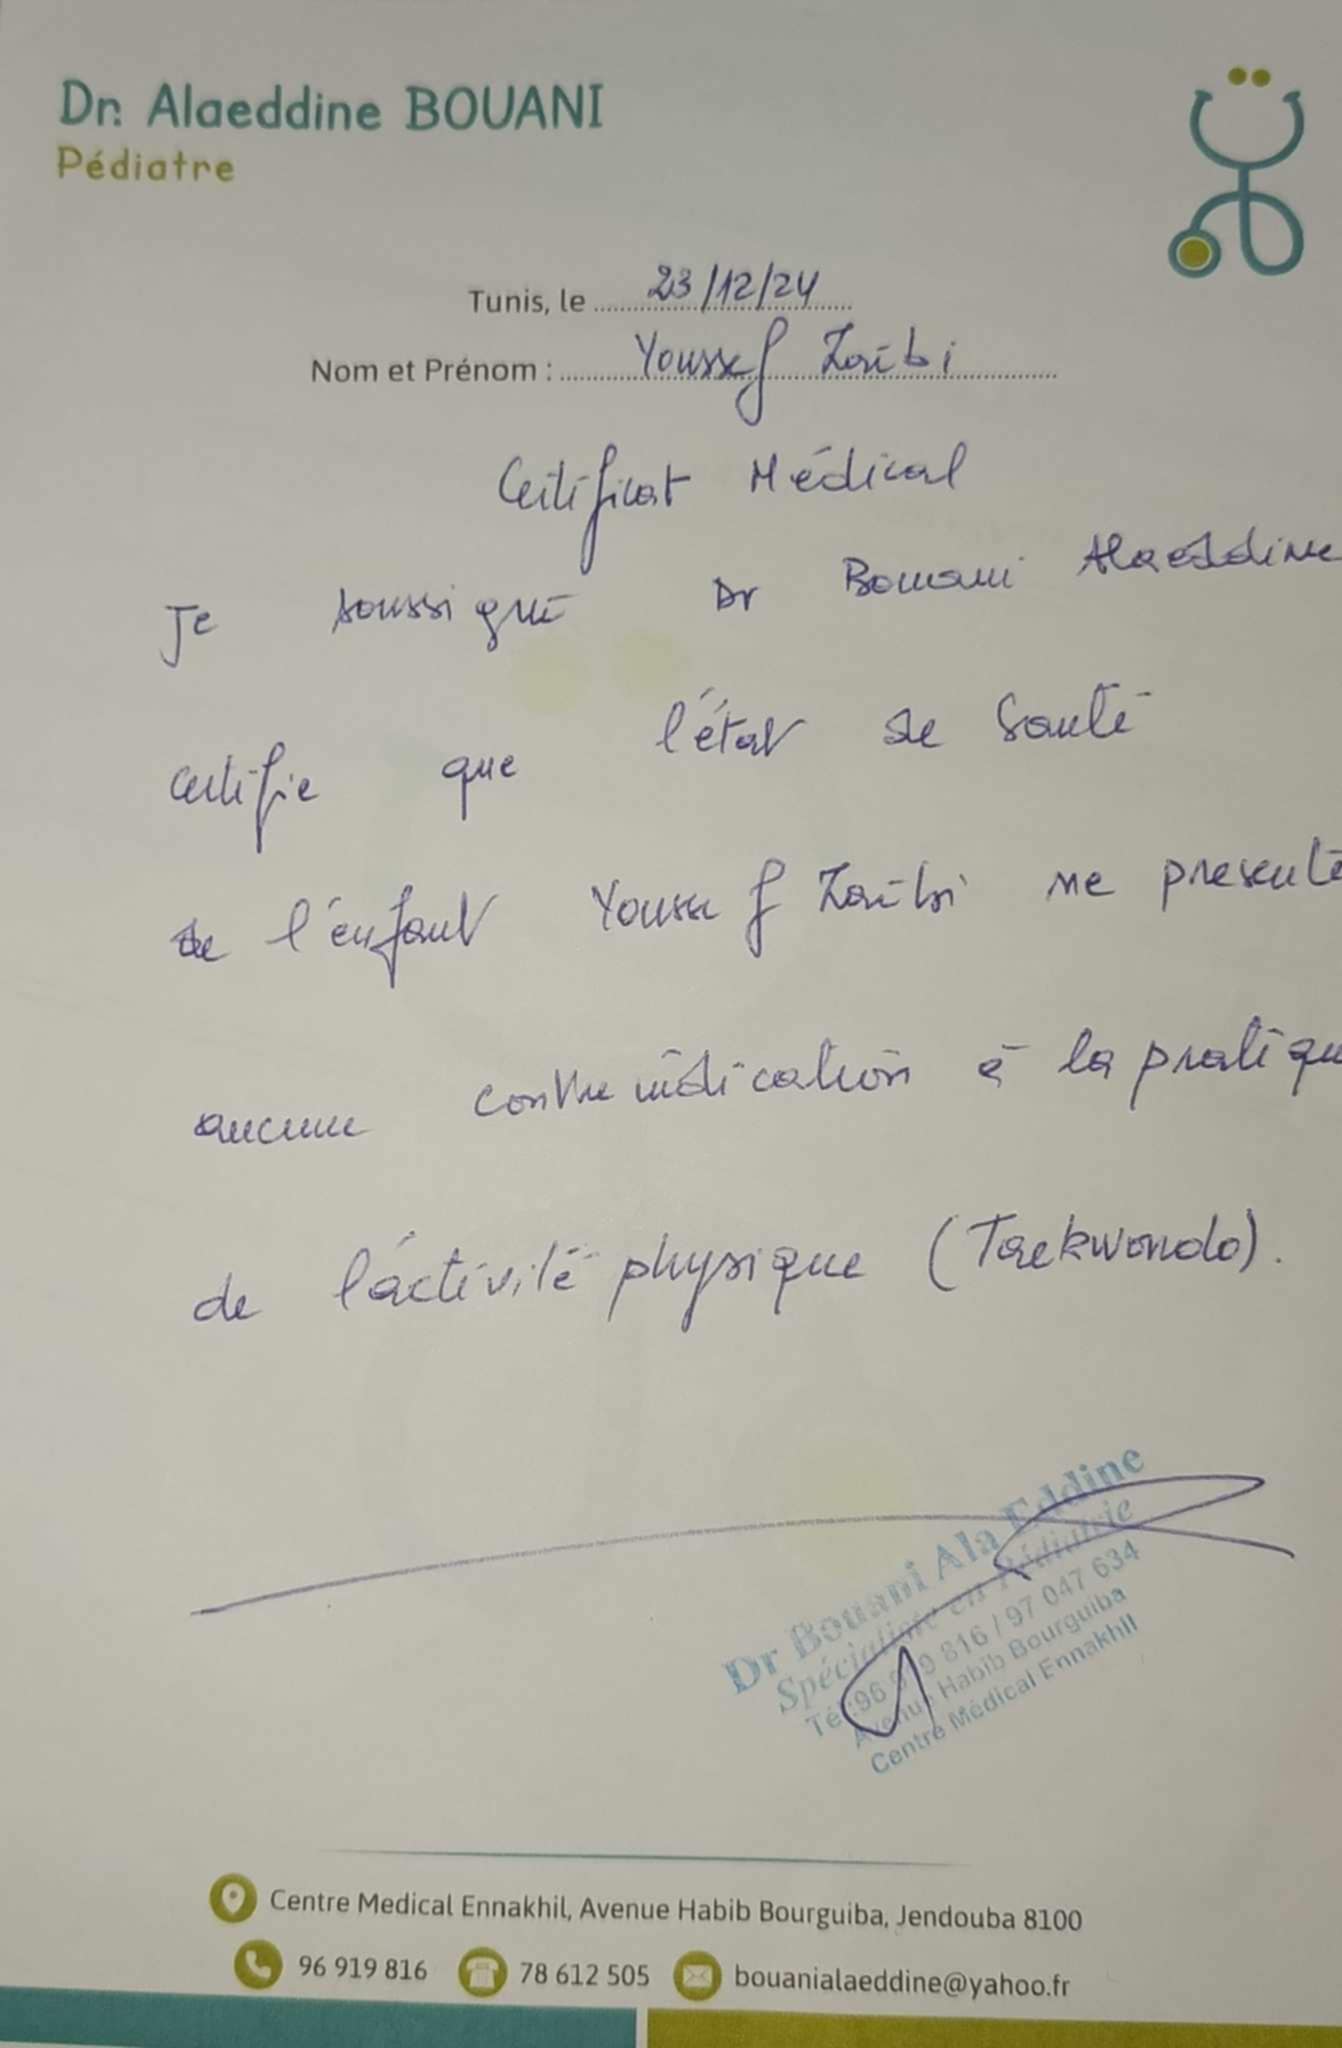 Dr. Alaeddine BOUANI
Pédiatre
Tunis, le 23/12/24
Nom et Prénom : Youssef Zaïbi
Certificat Médical
Je soussigné Dr Bouani Alaeddine
certifie que l'état de santé
de l'enfant Youssef Zaïbi ne presente
aucune contre indication à la pratique
de l'activité physique (Taekwondo).
Dr Bouani Ala Eddine
Spécialiste en Pédiatrie
Tél :96 919 816 / 97 047 634
Avenue Habib Bourguiba
Centre Médical Ennakhil
Centre Medical Ennakhil, Avenue Habib Bourguiba, Jendouba 8100
96 919 816 78 612 505 bouanialaeddine@yahoo.fr